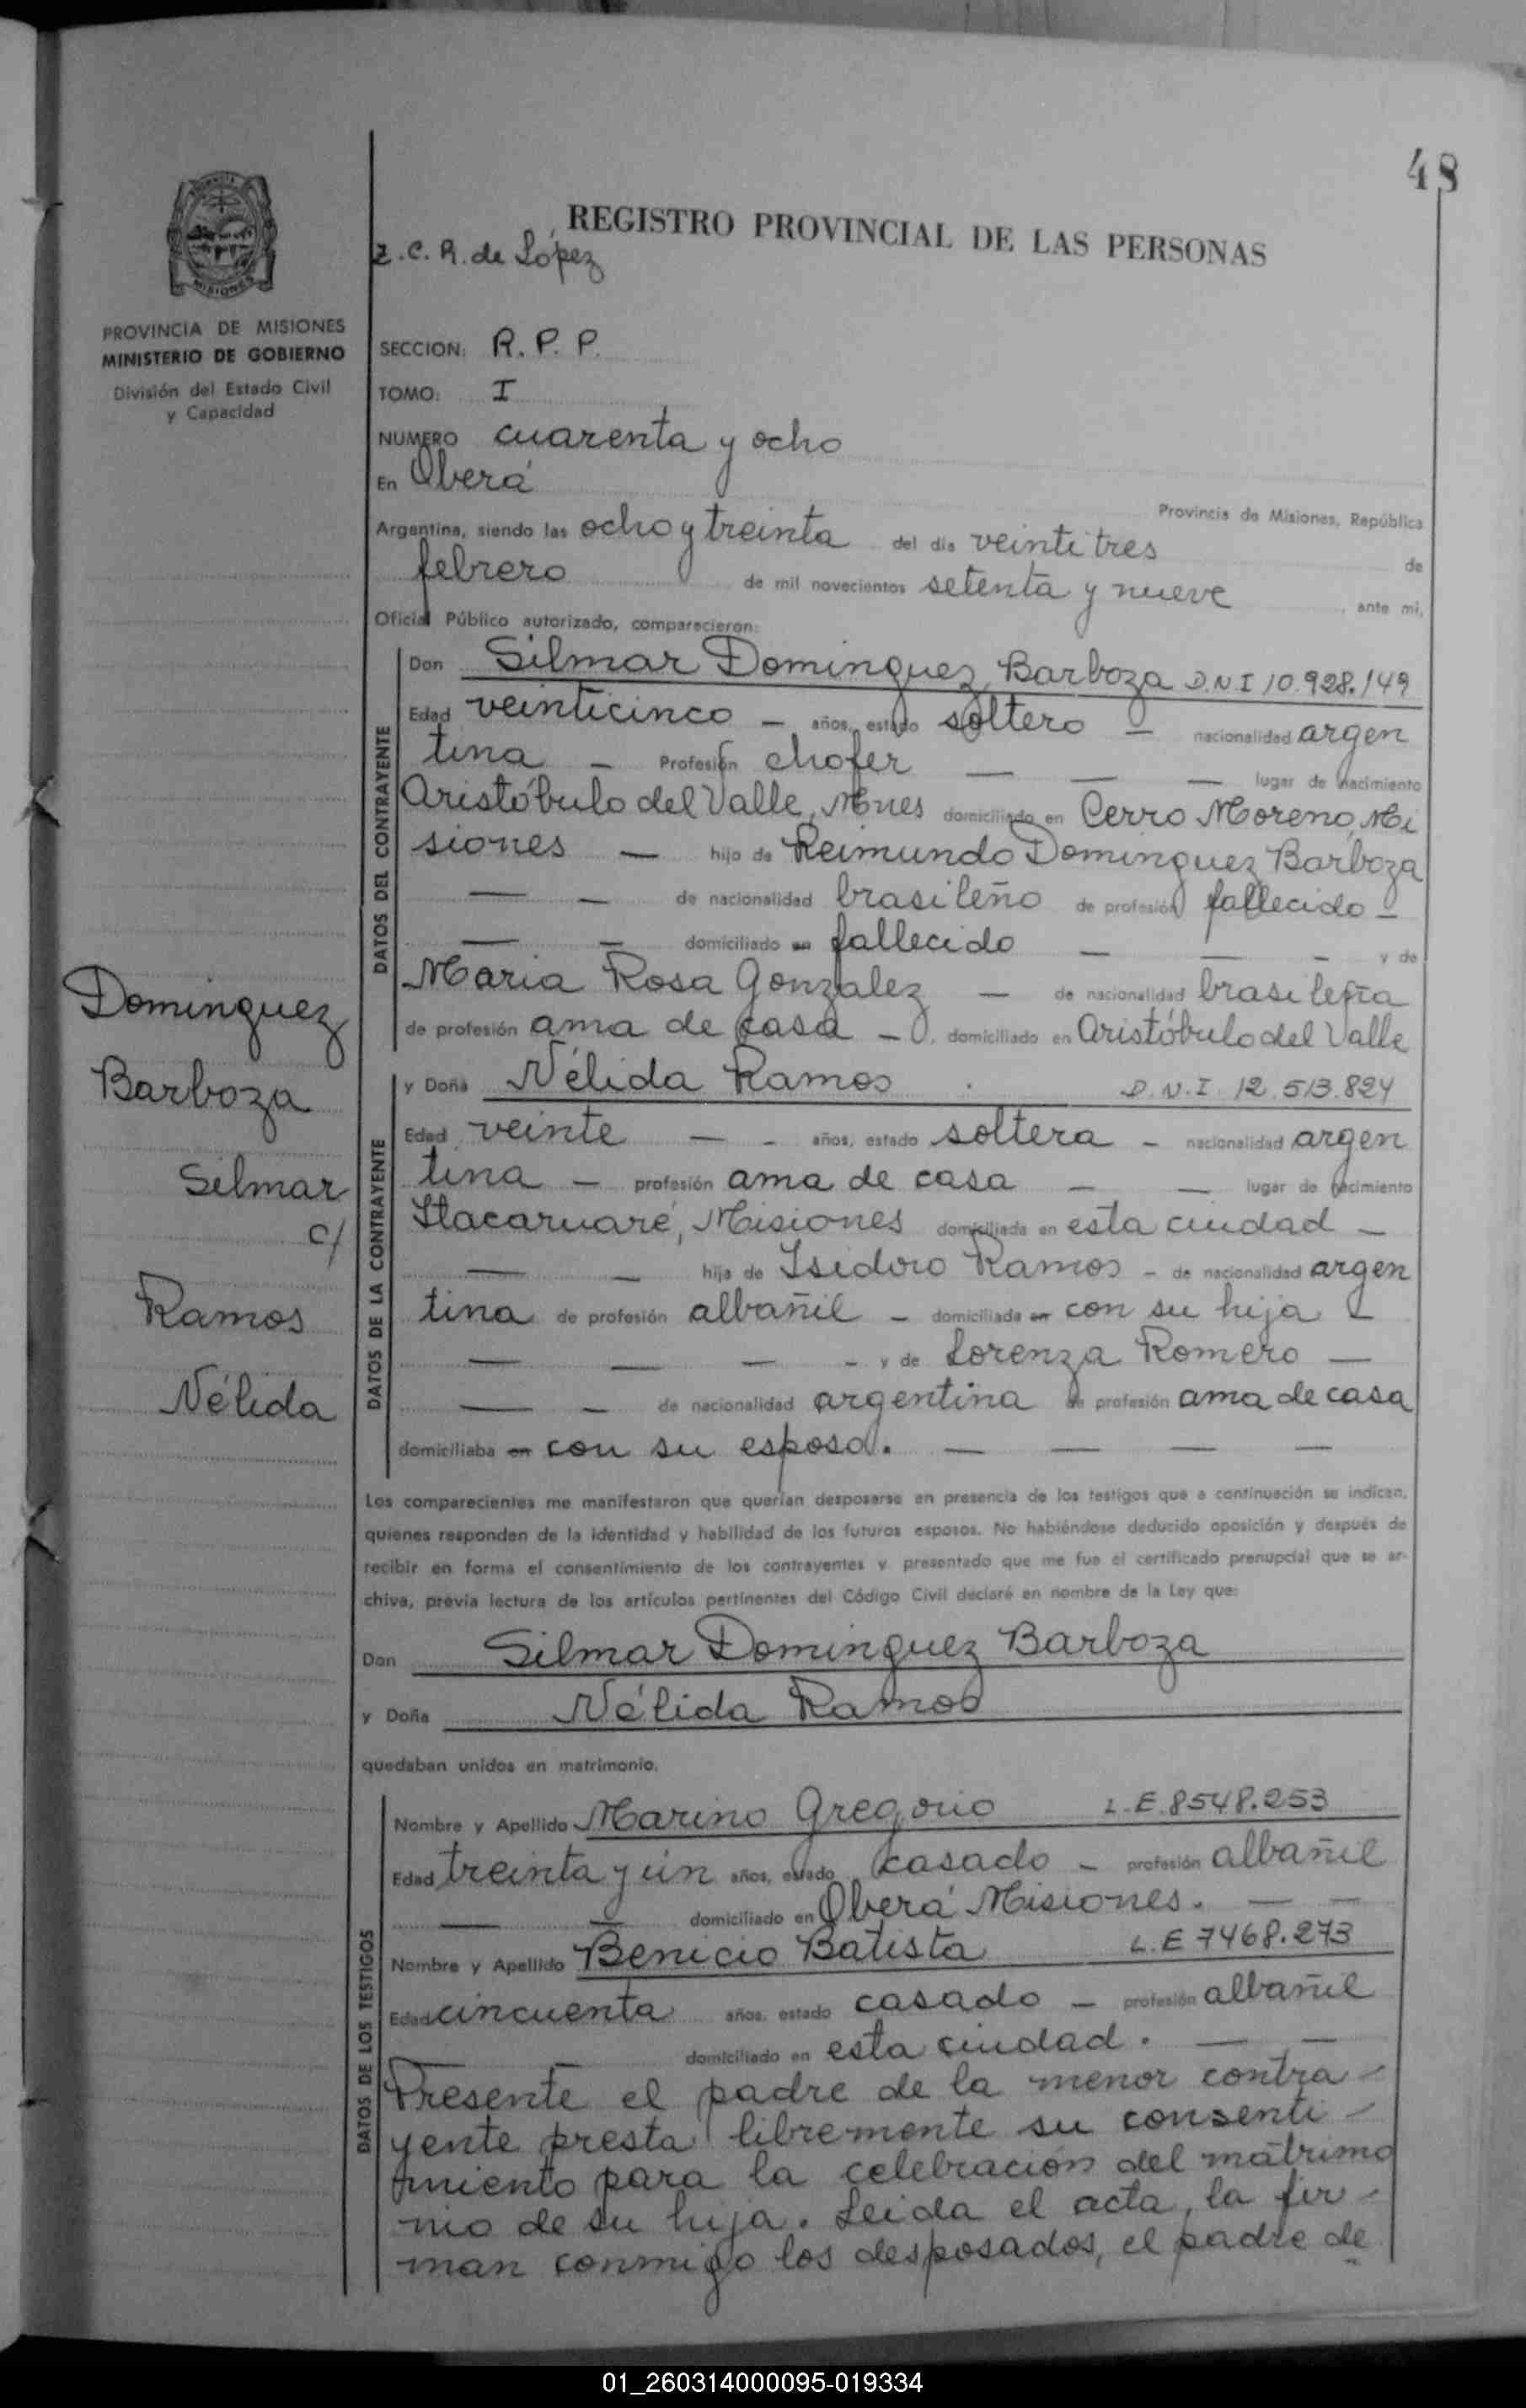 48
REGISTRO PROVINCIAL DE LAS PERSONAS
Z. C. R. de López
PROVINCIA DE MISIONES
MINISTERIO DE GOBIERNO
División del Estado Civil
y Capacidad
SECCION: R. P. P.
TOMO: I
NUMERO cuarenta y ocho
En Oberá
Provincia de Misiones, República
Argentina, siendo las ocho y treinta del día veintitres de
febrero de mil novecientos setenta y nueve, ante mi,
Oficial Público autorizado, comparecieron:
DATOS DEL CONTRAYENTE
Don Silmar Dominguez Barboza D.N.I 10.928.149
Edad veinticinco — años, estado soltero — nacionalidad argen
tina — Profesión chofer — — — lugar de nacimiento
Aristóbulo del Valle, Mnes domiciliado en Cerro Moreno, Mi
siones — hijo de Reimundo Dominguez Barboza
— — de nacionalidad brasileño de profesión fallecido —
— — domiciliado en fallecido — — — y de
Maria Rosa Gonzalez — de nacionalidad brasileña
de profesión ama de casa —, domiciliado en Aristóbulo del Valle
DATOS DE LA CONTRAYENTE
y Doña Nélida Ramos D.N.I. 12.513.824
Edad veinte — - años, estado soltera — nacionalidad argen
tina — profesión ama de casa — — lugar de nacimiento
Itacaruaré, Misiones domiciliada en esta ciudad —
— — hija de Isidoro Ramos - de nacionalidad argen
tina de profesión albañil — domiciliada en con su hija —
— — — - y de Lorenza Romero —
— — de nacionalidad argentina de profesión ama de casa
domiciliaba en con su esposo. — — — —
Dominguez
Barboza
Silmar
c/
Ramos
Nélida
Los comparecientes me manifestaron que querían desposarse en presencia de los testigos que a continuación se indican,
quienes responden de la identidad y habilidad de los futuros esposos. No habiéndose deducido oposición y después de
recibir en forma el consentimiento de los contrayentes y presentado que me fue el certificado prenupcial que se ar-
chiva, previa lectura de los artículos pertinentes del Código Civil declaré en nombre de la Ley que:
Don Silmar Dominguez Barboza
y Doña Nélida Ramos
quedaban unidos en matrimonio.
DATOS DE LOS TESTIGOS
Nombre y Apellido Marino Gregorio L.E. 8548.253
Edad treinta y ún años, estado casado — profesión albañil
— — domiciliado en Oberá Misiones. — —
Nombre y Apellido Benicio Batista L.E 7468.273
Edad cincuenta años, estado casado — profesión albañil
— — domiciliado en esta ciudad. — —
Presente el padre de la menor contra-
yente presta libremente su consenti-
miento para la celebración del matrimo
nio de su hija. Leida el acta, la fir-
man conmigo los desposados, el padre de
01_260314000095-019334